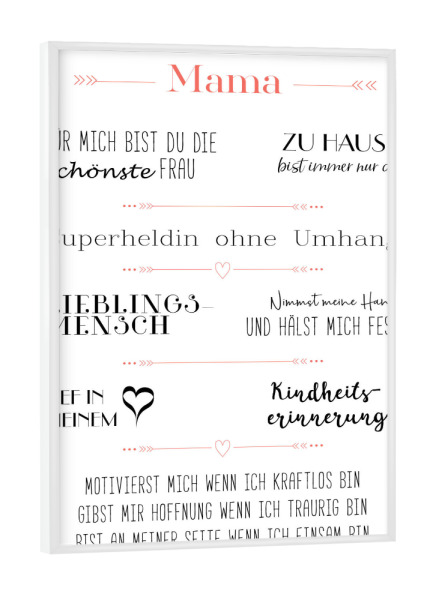 Mama
ÜR MICH BIST DU DIE
chönste FRAU
ZU HAUS
bist immer nur d
uperheldin ohne Umhang
LIEBLINGS-
MENSCH
Nimmst meine Han
UND HÄLST MICH FES
EF IN
EINEM
Kindheits-
erinnerung
MOTIVIERST MICH WENN ICH KRAFTLOS BIN
GIBST MIR HOFFNUNG WENN ICH TRAURIG BIN
BIST AN MEINER SEITE WENN ICH EINSAM BIN